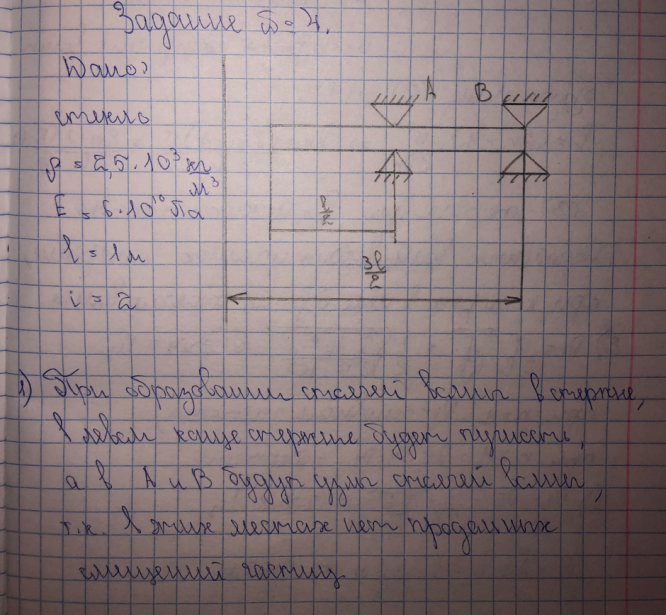 Задание n=4.
Дано:
стекло
A B
ρ = 2,5·10³ кг/м³
E = 6·10¹⁰ Па
l/2
l = 1м
3l/2
i = 2
1) При образовании стоячей волны в стержне,
в левом конце стержня будет пучность,
а в A и B будут узлы стоячей волны,
т.к. в этих местах нет продольных
смещений частиц.